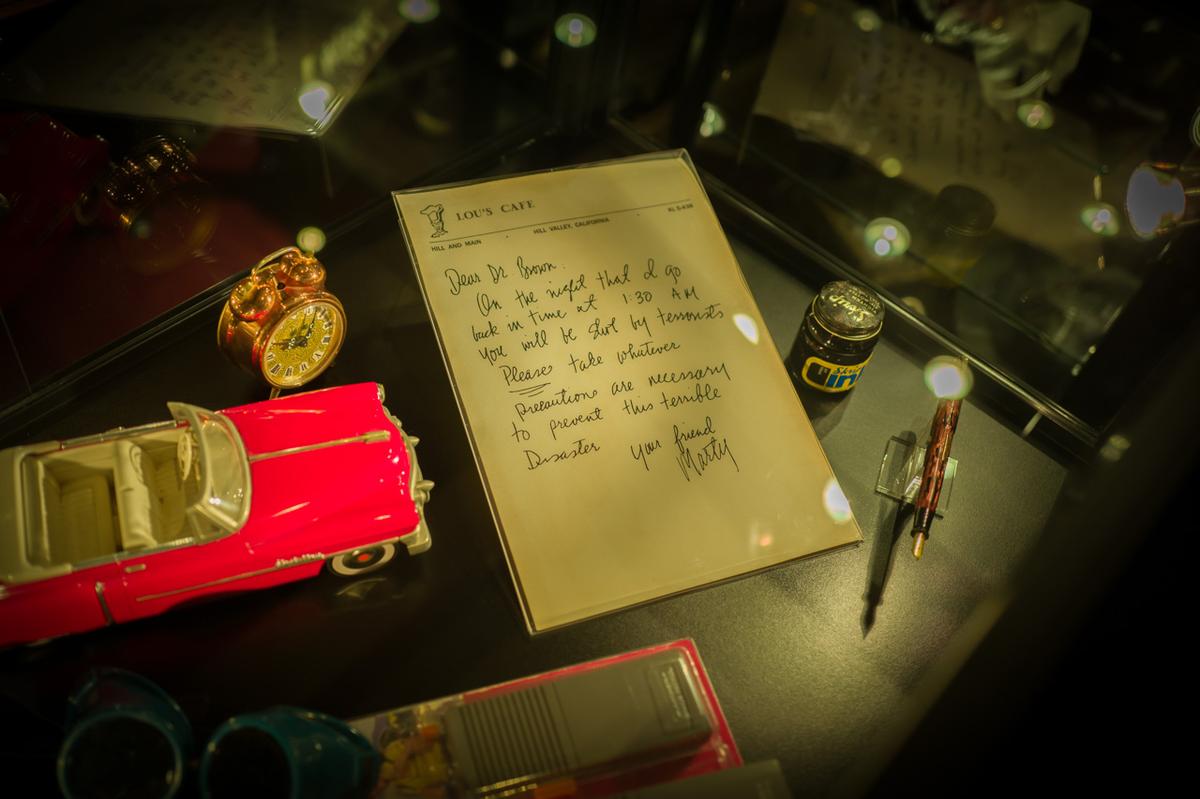 LOU'S CAFE
HILL AND MAIN
HILL VALLEY, CALIFORNIA
Dear Dr. Brown.
On the night that I go
back in time at 1:30 AM
you will be shot by terrorists
Please take whatever
precautions are necessary
to prevent this terrible
Disaster
Your friend
Marty
Skrip
ink